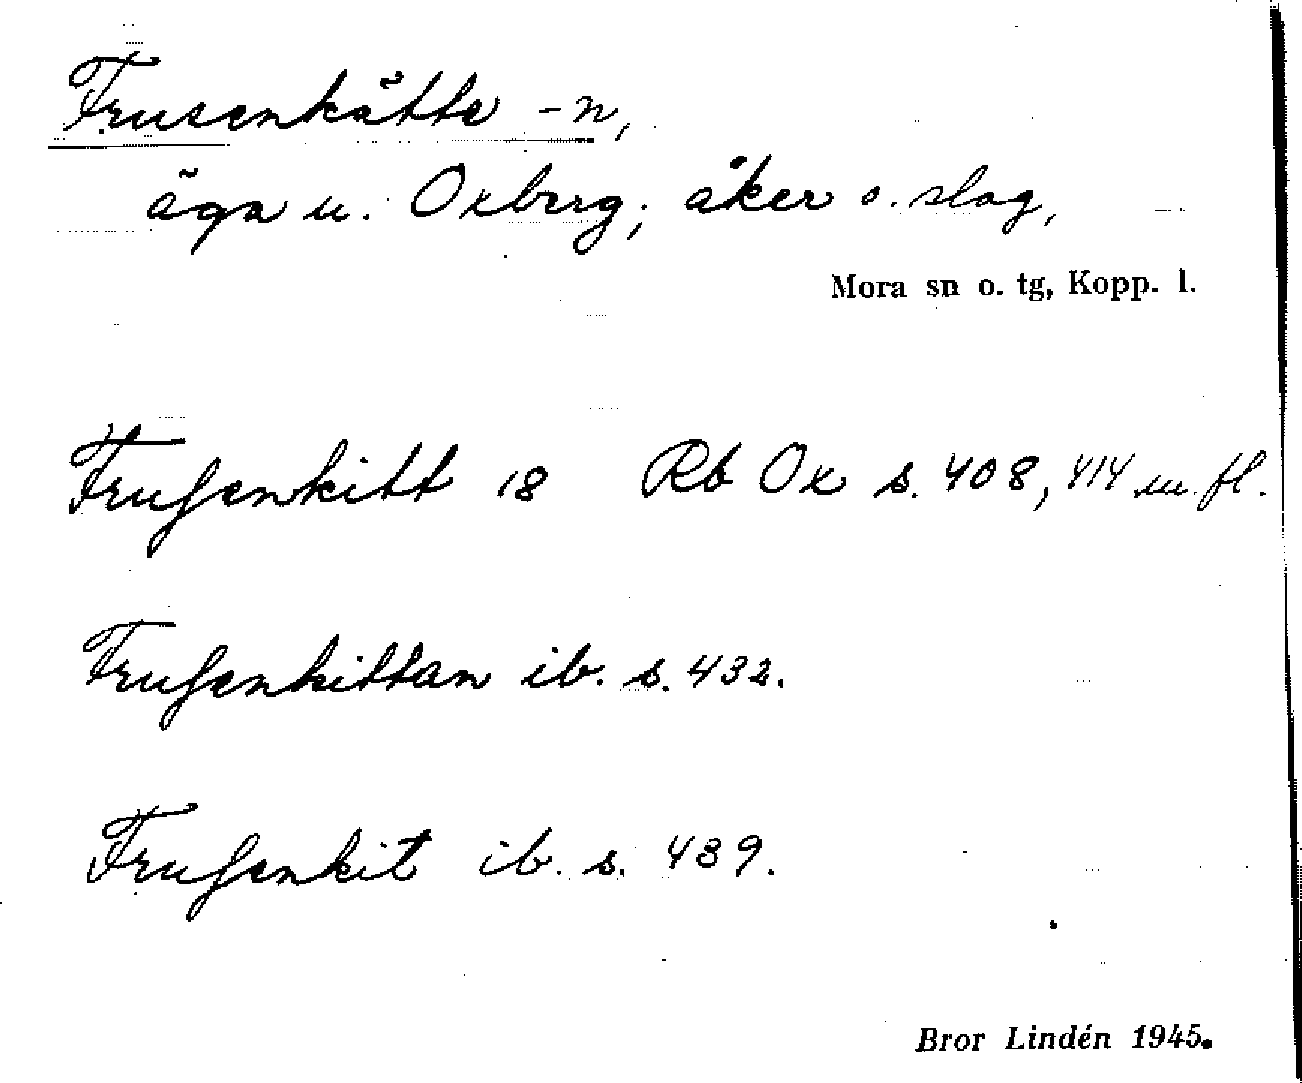 Frusenkätte -n,
äga u. Oxberg; åker o. slog,
Mora sn o. tg, Kopp. l.
Frusenkitt 18 Rb Ox s. 408, 414 m. fl.
Frusenkittan ib. s. 432.
Frusenkit ib. s. 439.
Bror Lindén 1945.